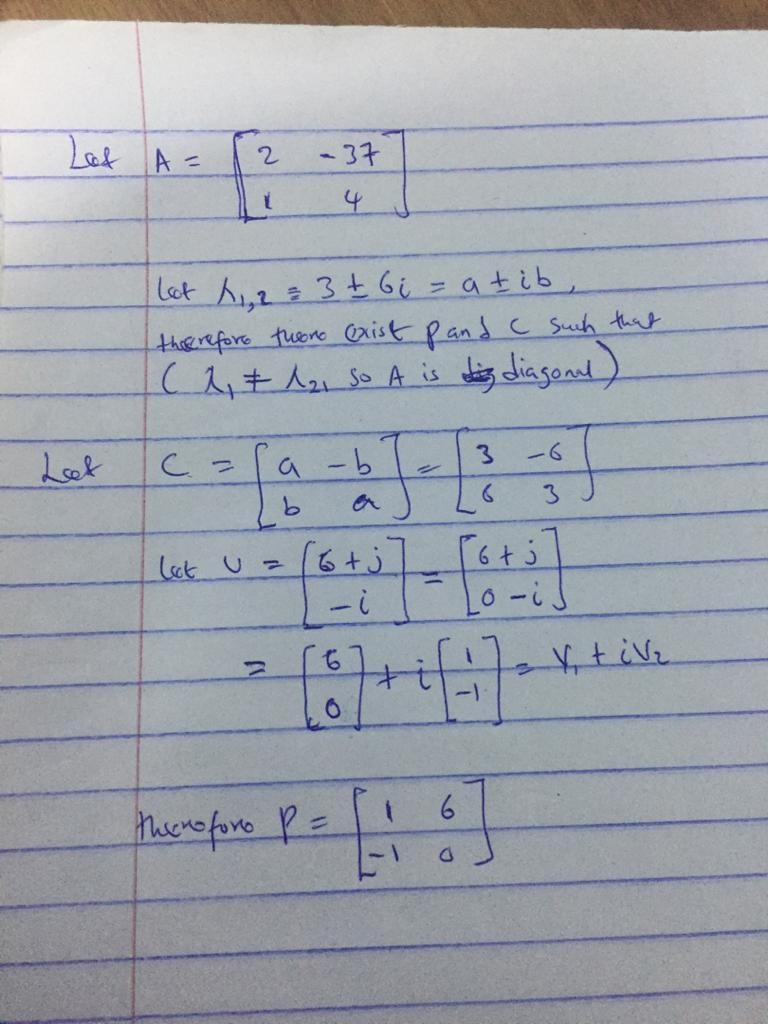 Let A = [2 -37
1 4]
Let λ1,2 = 3 ± 6i = a ± ib,
therefore there exist P and C such that
(λ1 ≠ λ2, so A is diagonal)
Let C = [a -b
b a] = [3 -6
6 3]
let v = [6+j
-i] = [6+j
0-i]
= [6
0] + i [1
-1] = V1 + iV2
therefore P = [1 6
-1 0]